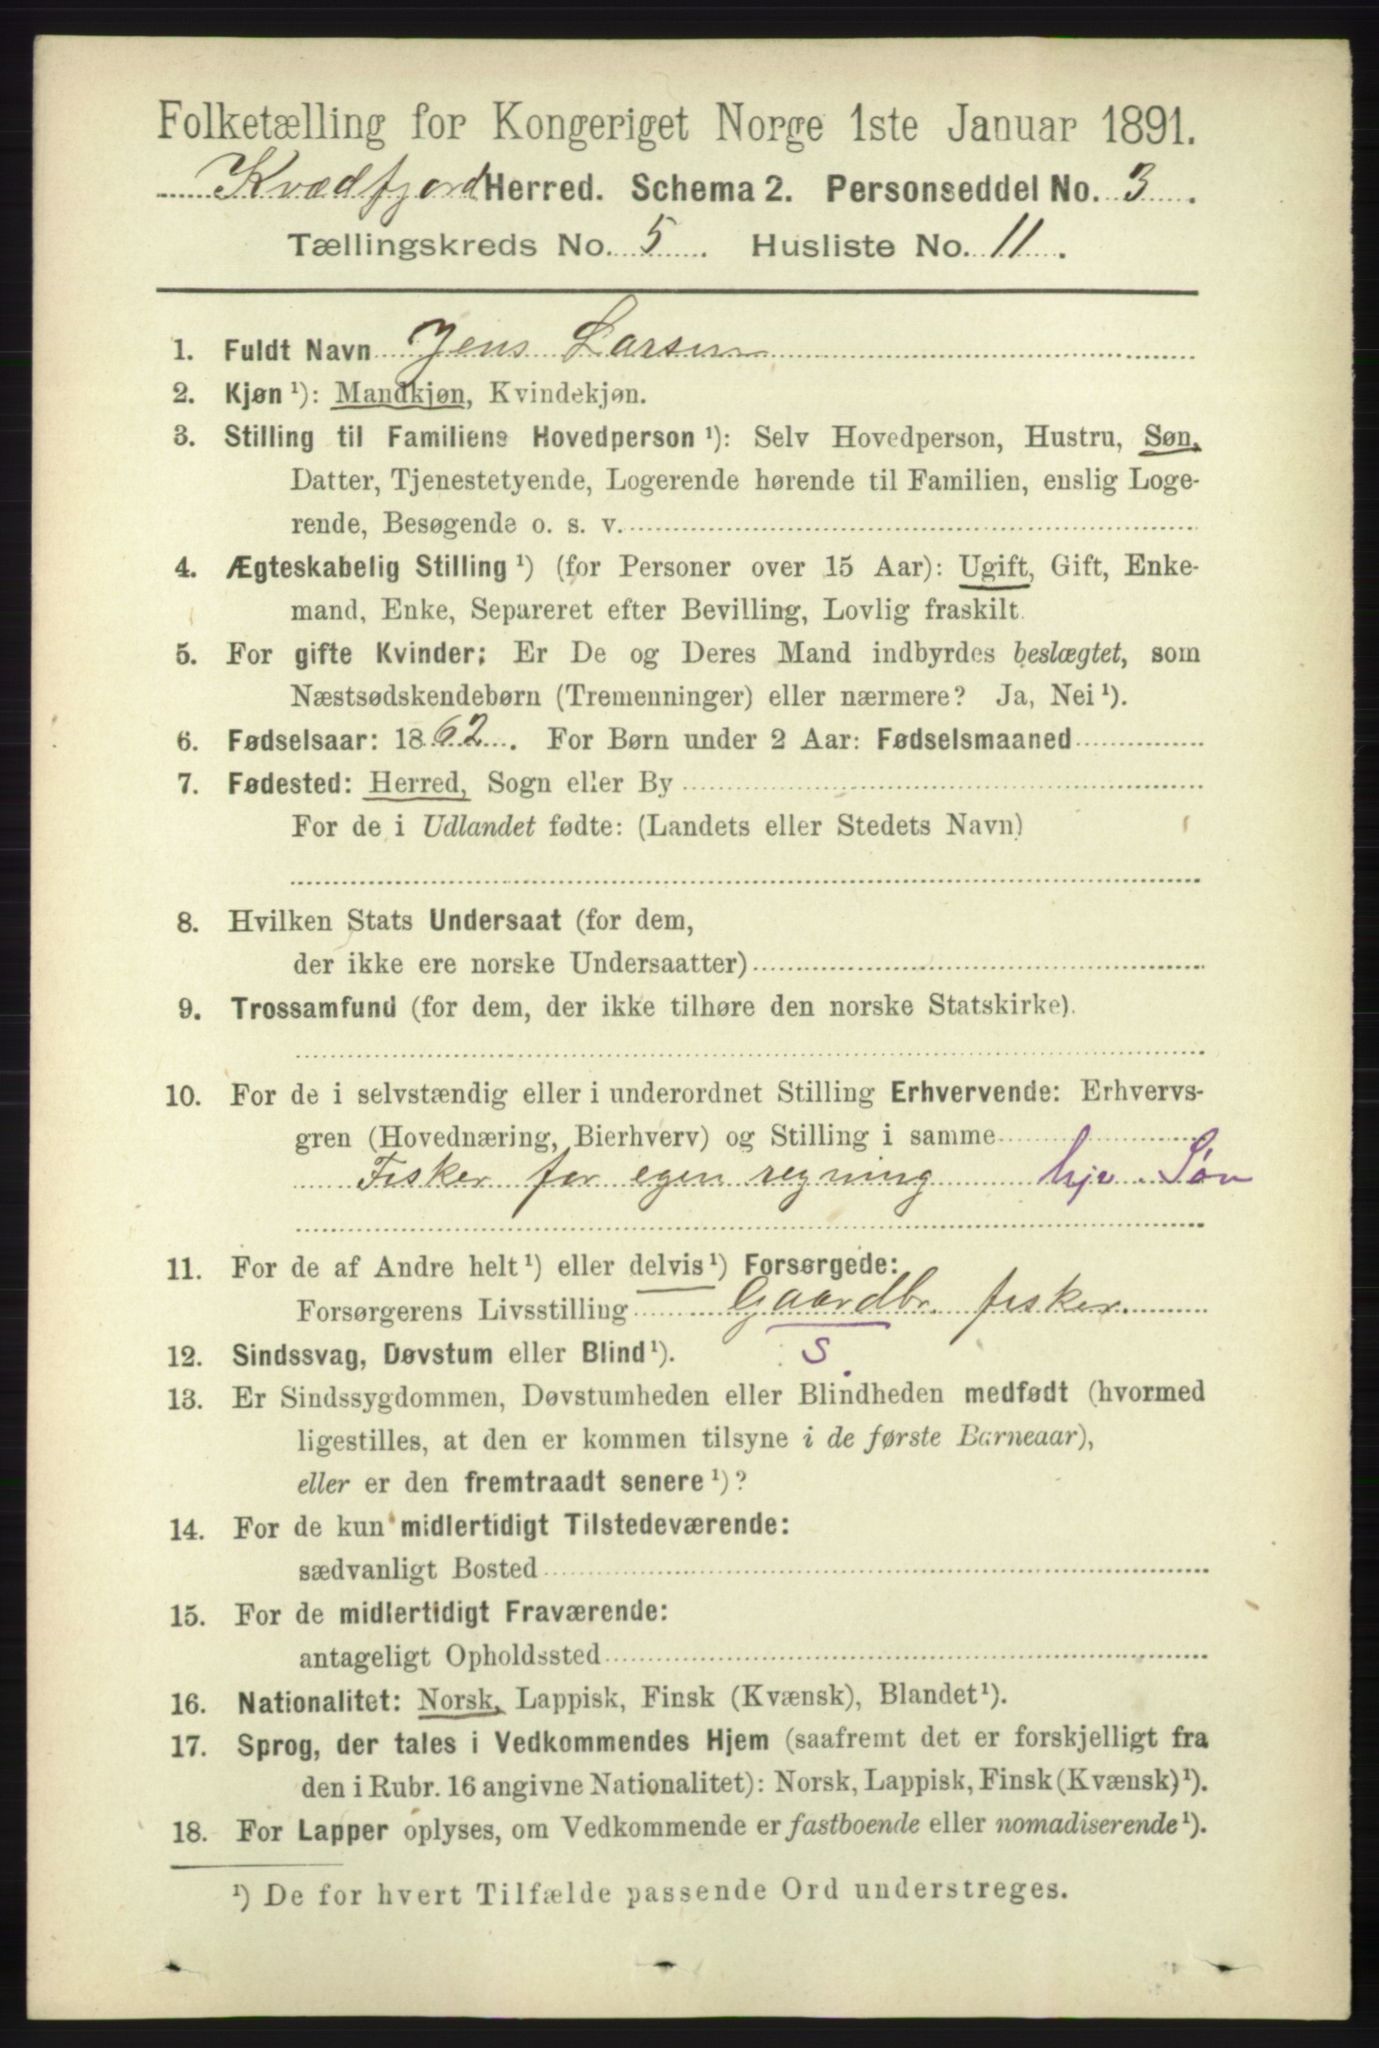 Folketælling for Kongeriget Norge 1ste Januar 1891.
Kvædfjord Herred. Schema 2. Personseddel No. 3.
Tællingskreds No. 5. Husliste No. 11.
1. Fuldt Navn Jens Larsen
2. Kjøn ¹): Mandkjøn, Kvindekjøn.
3. Stilling til Familiens Hovedperson ¹): Selv Hovedperson, Hustru, Søn,
Datter, Tjenestetyende, Logerende hørende til Familien, enslig Loge-
rende, Besøgende o. s. v.
4. Ægteskabelig Stilling ¹) (for Personer over 15 Aar): Ugift, Gift, Enke-
mand, Enke, Separeret efter Bevilling, Lovlig fraskilt.
5. For gifte Kvinder: Er De og Deres Mand indbyrdes beslægtet, som
Næstsødskendebørn (Tremenninger) eller nærmere? Ja, Nei ¹).
6. Fødselsaar: 1862. For Børn under 2 Aar: Fødselsmaaned
7. Fødested: Herred, Sogn eller By
For de i Udlandet fødte: (Landets eller Stedets Navn)
8. Hvilken Stats Undersaat (for dem,
der ikke ere norske Undersaatter)
9. Trossamfund (for dem, der ikke tilhøre den norske Statskirke).
10. For de i selvstændig eller i underordnet Stilling Erhvervende: Erhvervs-
gren (Hovednæring, Bierhverv) og Stilling i samme
Fisker for egen regning hjv. Søn
11. For de af Andre helt ¹) eller delvis ¹) Forsørgede:
Forsørgerens Livsstilling Gaardbr. fisker.
12. Sindssvag, Døvstum eller Blind ¹). S.
13. Er Sindssygdommen, Døvstumheden eller Blindheden medfødt (hvormed
ligestilles, at den er kommen tilsyne i de første Barneaar),
eller er den fremtraadt senere ¹)?
14. For de kun midlertidigt Tilstedeværende:
sædvanligt Bosted
15. For de midlertidigt Fraværende:
antageligt Opholdssted
16. Nationalitet: Norsk, Lappisk, Finsk (Kvænsk), Blandet ¹).
17. Sprog, der tales i Vedkommendes Hjem (saafremt det er forskjelligt fra
den i Rubr. 16 angivne Nationalitet): Norsk, Lappisk, Finsk (Kvænsk) ¹).
18. For Lapper oplyses, om Vedkommende er fastboende eller nomadiserende ¹).
¹) De for hvert Tilfælde passende Ord understreges.